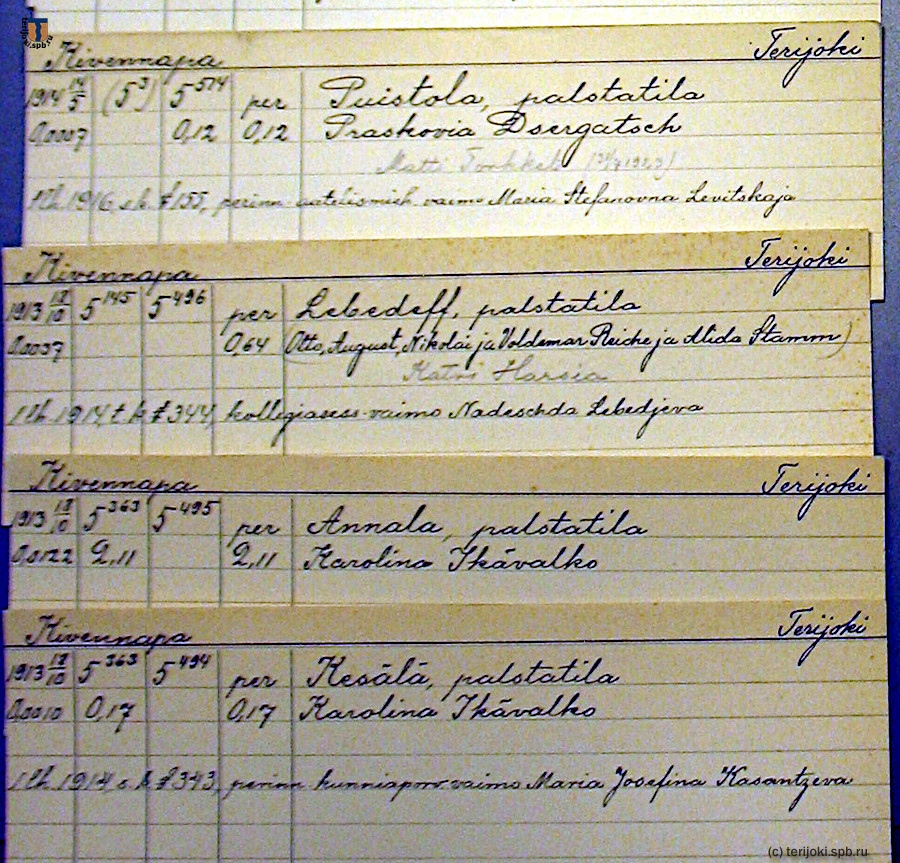 Kivennapa Terijoki
1914 14/5 (5³) 5⁵¹⁴ per Puistola, palstatila
0,0007 0,12 0,12 Praskovia Dsergatsch
Matti
1916, s.k. £ 155, perinn. aatelismieh. vaimo Maria Stefanovna Levitskaja
Kivennapa Terijoki
1913 18/10 5¹⁴⁵ 5⁴⁹⁶ per Lebedeff, palstatila
0,0037 0,64 (Otto, August, Nikolai ja Voldemar Reiche ja Alida Stamm)
Katri Harsia
1914, t.k. £ 344, kollegiasess. vaimo Nadeschda Lebedjeva
Kivennapa Terijoki
1913 18/10 5³⁶³ 5⁴⁹⁵ per Annala, palstatila
0,0122 2,11 2,11 Karolina Ikävalko
Kivennapa Terijoki
1913 18/10 5³⁶³ 5⁴⁹⁴ per Kesälä, palstatila
0,0010 0,17 0,17 Karolina Ikävalko
1914 s.k. £ 343, perinn. kunniaporv. vaimo Maria Josefina Kasantzeva
(c) terijoki.spb.ru